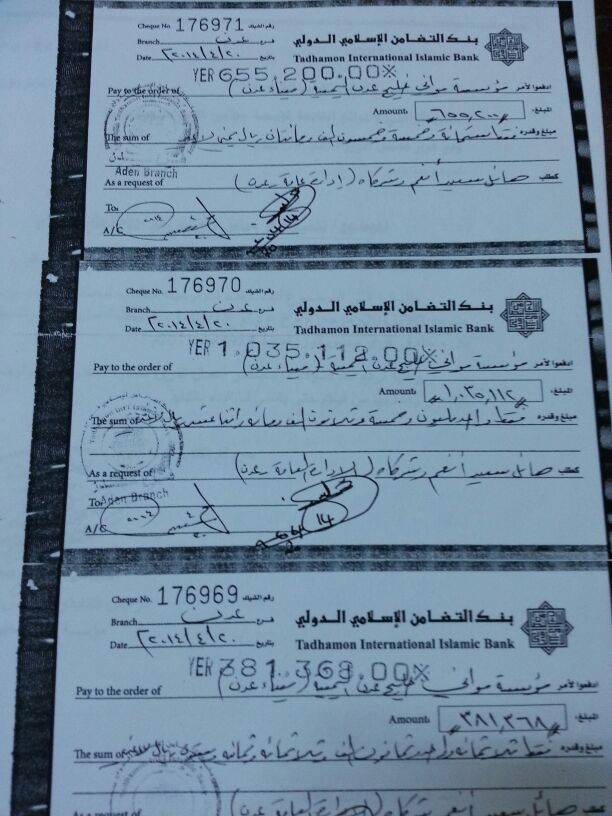 Cheque No. 176971 رقم الشيك
Branch عدن فرع
Date ٢٠١٤/٤/٢٠ بتاريخ
بنك التضامن الإسلامي الدولي
Tadhamon International Islamic Bank
YER 655,200.00X
Pay to the order of مؤسسة موانئ خليج عدن اليمنية (ميناء عدن) ادفعوا لأمر
Amount: ٦٥٥,٢٠٠ المبلغ
The sum of فقط ستمائة وخمسة وخمسون الف ومائتان ريال يمني لاغير مبلغ وقدره
Aden Branch
As a request of هائل سعيد أنعم وشركاه (إدارة عامة وعدن) كطلب
To:
A/C
Cheque No. 176970 رقم الشيك
Branch عدن فرع
Date ٢٠١٤/٤/٢٠ بتاريخ
بنك التضامن الإسلامي الدولي
Tadhamon International Islamic Bank
YER 1,035,112.00X
Pay to the order of مؤسسة موانئ خليج عدن اليمنية (ميناء عدن) ادفعوا لأمر
Amount: ١,٠٣٥,١١٢ المبلغ
The sum of فقط واحد مليون وخمسة وثلاثون الف ومائة واثنا عشر ريال لاغير مبلغ وقدره
As a request of هائل سعيد أنعم وشركاه (الادارة العامة وعدن) كطلب
To: Aden Branch
A/C
Cheque No. 176969 رقم الشيك
Branch عدن فرع
Date ٢٠١٤/٤/٢٠ بتاريخ
بنك التضامن الإسلامي الدولي
Tadhamon International Islamic Bank
YER 381,368.00X
Pay to the order of مؤسسة موانئ خليج عدن اليمنية (ميناء عدن) ادفعوا لأمر
Amount: ٣٨١,٣٦٨ المبلغ
The sum of فقط ثلاثمائة وواحد وثمانون الف وثلاثمائة وثمانية وستون ريال لاغير مبلغ وقدره
As a request of هائل سعيد أنعم وشركاه (الادارة العامة وعدن) كطلب